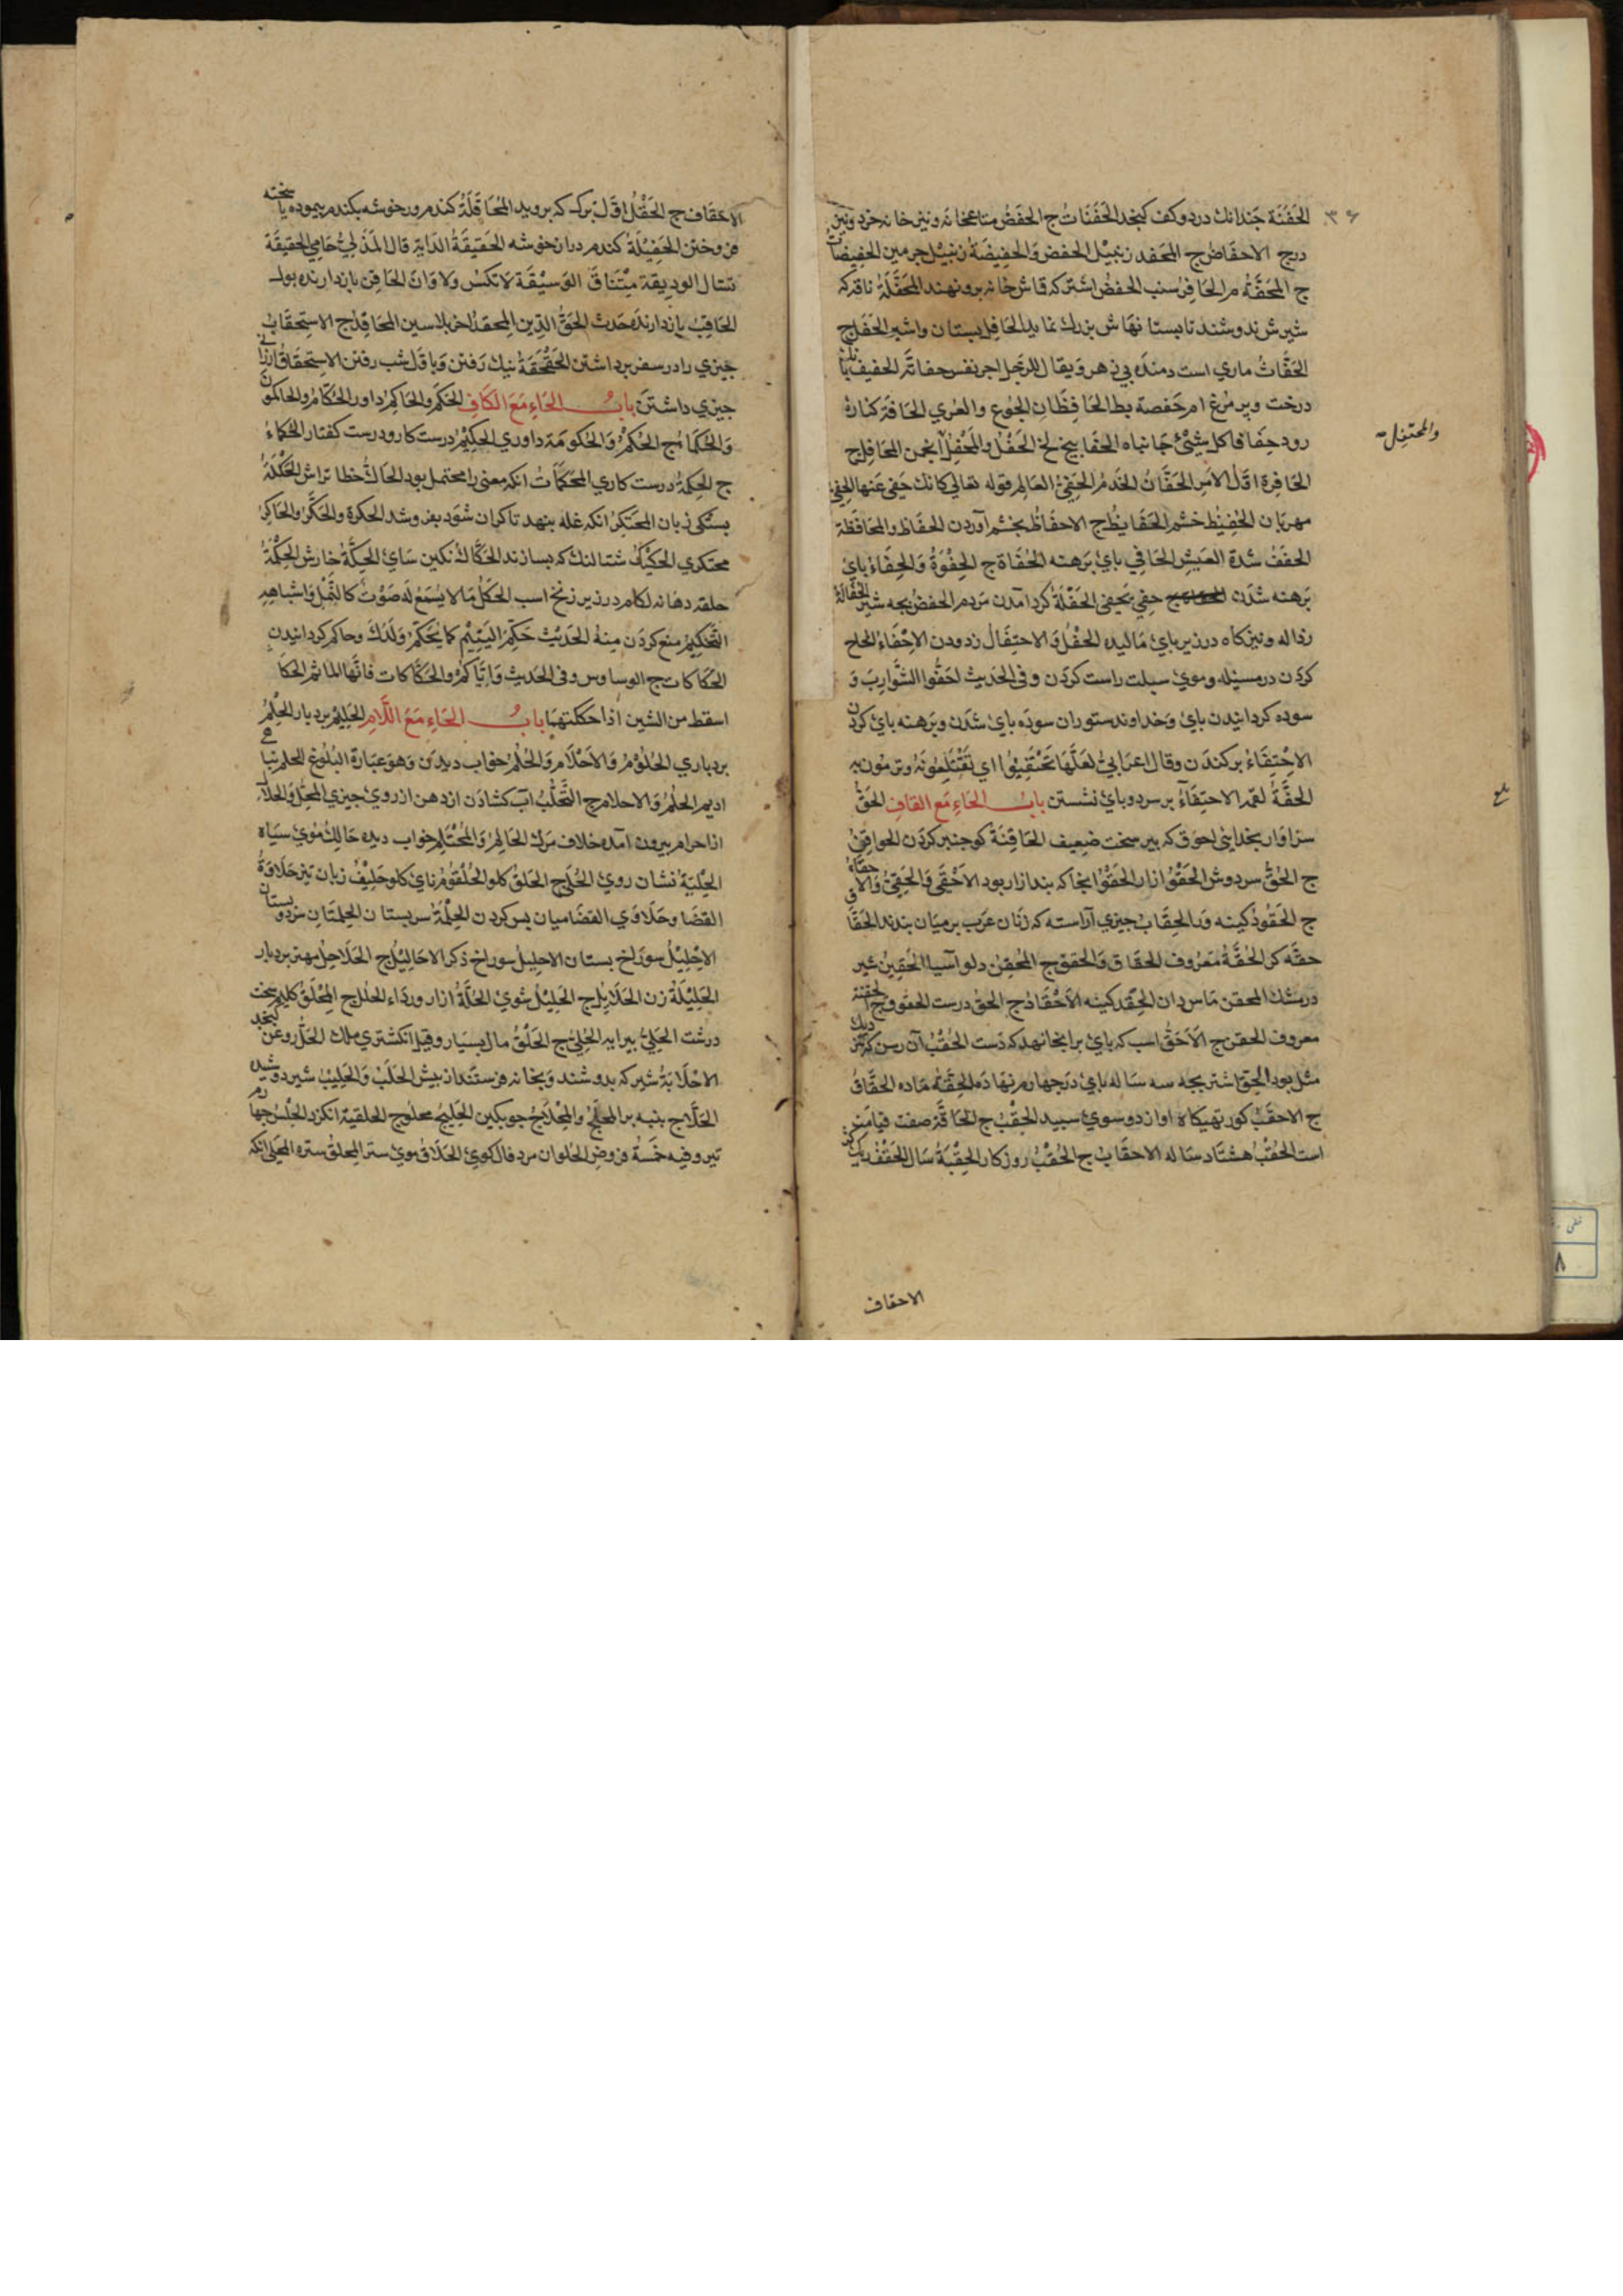 الحَفنَة چندانك در دو كف كنجد الحَفَنَاتُ ج الحفَضُ متاع خانه ونيز خانه خرد ونيز
درج الاحفاضُ ج المحفد زنبيل الحفض وَالحفِيضَةُ زنبيل چرمين الحفيضات
ج المحَفَّة م الحَافِرُ سنب الحفضُ اشتر كه قماش خانه برو نهند المحَفَّلَةُ ناقه كه
شيرش ندوشند تا بستانهاش بزرك نمايد الحَافِل بستان واشير الحفَّل ج
الحَفَّاثُ ماري است دمنده بي زهر ويقال للرجل اجرنفس حفاثه الحفيف بانك
درخت وپر مرغ ام حَفصة بط الحَافِظَانِ الجُوع والعُري الحَافَة كناره
رود حِفَافا كل شيْءٍ جَانباه الحَفا بيخ لخ الحَفْل والمَحْفِل انجمن المحَافِل ج
الحَافِرة اوّل الامر الحَفَّانُ الخَدَمُ الحَفِيُّ العَالِم قوله تعالى كانك حَفي عَنها الحفيّ
مهربان الحَفِيْظ خشم الحَفَايظُ ج الاحفَاظُ بخشم آوردن الحفَاظ والمحَافَظَة
الحفَفُ شدة العَيشِ الحَافي پاي برهنه الحُفَاة ج الحِفْوَةُ وَالحِفَاءُ پاي
برهنه شدن حفِي يَحفي الحَفْلَةُ كرد آمدن مردم الحفضُ بچه شير الحُفَالَةُ
رذاله ونيز كاه در زير پاي ماليده الحَفْلُ وَالاحتِفَالُ زدودن الاِحْفَاءُ الحاح
كردن در مسئله وموي سبلت راست كردن وفى الحَديث احفُوا الشَّوَارِبَ وَ
سوده كردانيدن پاي وخداوند ستوران سوده پاي شدن وبرهنه پاي كردن
الاحْتِفَاءُ بركندن وقال اعرَابيٌّ لعَلَّهَا تَحْتَفِيُوا اي تَقْتَلِعُونَهُ وترمُون به
الحفَّةُ لقمه الاحتِفَاءُ بر سر دو پاي نشستن بابُ الحَاءِ مَع القافِ الحَقُّ
سزاوار بخدايي احوق كه پير سخت ضعيف الحَاقِنَة كو چنبر كردن الحواقِنُ
ج الحُقُّ سر دوش الحَقْوُ ازار الحَقْوُ انجا كه بند ازار بود الاَحْقي وَالحُقِيّ وَالاحقي حقاء
ج الحَقُودُ كينه ور الحِقَابُ چيزي آراسته كه زنان عرب بر ميان بندند الحَقَّا
حقه كر الحُقَّةُ مَعرُوف الحِقَاق وَالحقق ج المُحقِنُ دلو آسيا الحَقِينُ شير
در مشك المحقن ماسردان الحِقْد كينه الاَحْقَادُ ج الحق درست الحقوق ج الحقنة
معروف الحقن ج الاَحَقُّ اسب كه پاي بر انجا نهد كه دست الحُقُبُ آن رسن كه ديك
مثل بود الحِقُّ اشتر بچه سه ساله پاي در چهارم نهاده الحِقَّةُ ماده الحِقَاقُ
ج الاحقَبُ كور تهيكاه او از دو سوي سپيد الحُقْب ج الحَاقَّة صفت قيامت
است الحُقُبُ هشتاد ساله الاحقَابُ ج الحُقُبُ روزكار الحِقْبَةُ سَال الحِقْفُ ريك كژ
والمحتفِل
بلغ
٣٦
الاحقاف
الاحقَاف ج الحَقْلُ اوّل برك كه برويد المُحَاقَلَةُ كندم در خوشه بكندم پيموده يا سخته
فروختن الحَقِيْلَةُ كندم در ان خوشه الحَقِيقَةُ الدَّايَة قال الهذلِيّ حَامِي الحقِيقَة
نسَال الوديقة مِعْتَاقُ الوَسِيْقَة لا نِكْسٌ ولا وَانَ الحَاقِن بازدارنده بول
الحَاقِبُ بازدارنده حَدث الحَقُّ الدِّين المِحقَدُ آخر پلاسين المحَاقِدُ ج الاِستِحقَابُ
چيزي را در سفر برداشتن الحَقحَقَةُ نيك رفتن وَباوّل شب رفتن الاِستِحقَاقُ ارزاني
چيزي داشتن بابُ الحَاءِ مَعَ الكَافِ الحَكَم والحَاكِمُ داور الحُكَّامُ والحاكمون
وَالحُكَّما ج الحُكْمُ وَالحُكومَة داوري الحَكِيْمُ درست كار ودرست كفتار الحُكماءُ
ج الحِكمة درست كاري المُحْكَمَاتُ انكه معنى را محتمل بود الحَاكُّ خطا تراش الحُكلَةُ
بستكى زبان المحتَكِرُ انكه غله بنهد تا كران شود بفروشد الحكرة والحَكَرُ والحَاكِرُ
محتكري الحَكيكُ شتالنك كه بسازند الحَكَّاكُ نكين ساي الحِكَّةُ خارش الحَكَمَةُ
حلقه دهانه لكام در زير زنخ اسب الحُكْلُ ما لا يُسْمَعُ لهُ صَوْتٌ كالنَّمْل وَاشباهِهِ
التَّحكِيمُ منع كردن منهُ الحَدِيْثُ حَكِّمِ اليَتِيْم كما تُحَكِّمُ وَلَدَكَ وحاكم كردانيدن
الحَكَّاكات ج الوساوس وفى الحَديث وَاِيَّاكُمْ والحَكَّاكات فانَّها المآثم الحكا
اسقط من الشين اذا حككتهما بابُ الحَاءِ مَعَ اللَّامِ الحَلِيْمُ بردبار الحِلْمُ
بردباري الحُلُوْمُ وَالاَحْلَام وَالحُلُمُ خواب ديدن وَهوَ عبَارة البُلُوغِ الحلم تباهي
اديم الحلُمُ وَالاحلام ج التَّحَلُّبُ آب كشادن از دهن از روي چيزي المحِلُّ وَالحلال
اذا حرام بيرون آمده خلاف مرك الحَالِمُ وَالمُحْتَلِم خواب ديده حَالِكُ موي سياه
الحِلْيَةُ نشان روي الحُلي ج الحَلقُ كلو الحُلْقوُم ناي كلو حَلِيْفُ زبان تيز حلَاوَةُ
القَفَا وحَلَاوَي القفَا ميان پس كردن الحَلَمَةُ سر پستان الحلمَتَانِ سر دو پستان
الاِحْلِيْلُ سوراخ پستان الاحلِيلُ سوراخ ذكر الاحَالِيْلُ ج الحُلَاحِلُ مهتر بردبار
الحَلِيْلَةُ زن الحَلَايِلُ ج الحَلِيْلُ شوي الحُلَّةُ ازار ورداء الحُلَل ج المِحْلَقُ كليم سخت
درشت الحَليُ پيرايه الحُلِيُّ ج الحَلْقُ مال بسيار وقيل انكشتري ملك الحَلُّ روغن كنجد
الاحْلَابَةُ شير كه بدوشند وبخانه فرستند از پيش الحَلَبُ وَالحَلِيْبُ شير دوشيده
الحَلَّاج پنبه بر المحلَجُ والمِحْلَاجُ چوبكين الحَلِيجُ محلوج الحلقية انكزد الحَلْسُ چهارم
تير وفيه خَمسَةُ فروض الحُلوان مزد فال كوي الحَلَّاق موي ستر المِحلَقُ ستره المحَلّي انكه